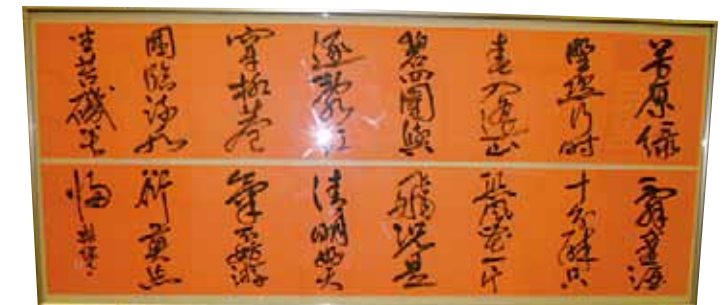 芳原綠
野恣行時
春入遙山
碧四圍興
逐亂紅
穿柳巷
困臨流水
坐苔磯莫
辭盞酒
十分醉只
恐風花一片
飛況是
清明好天
氣不妨遊
衍莫忘
歸